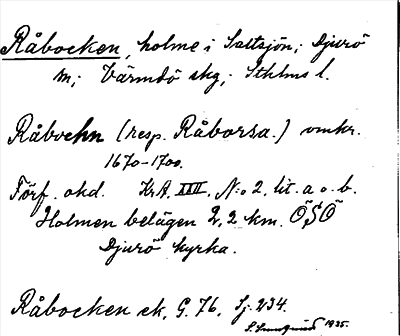 Råbocken, holme i Saltsjön; Djurö
sn; Värmdö skg; Sthlms l.
Råbochn (resp. Råborsa.) omkr.
1670-1700.
Förf. okd. KrA. XXII. N:o 2. lit. a o. b.
Holmen belägen 2,2 km. ÖSÖ
Djurö kyrka.
Råbocken ek. G. 76, Sj. 234.
1935.